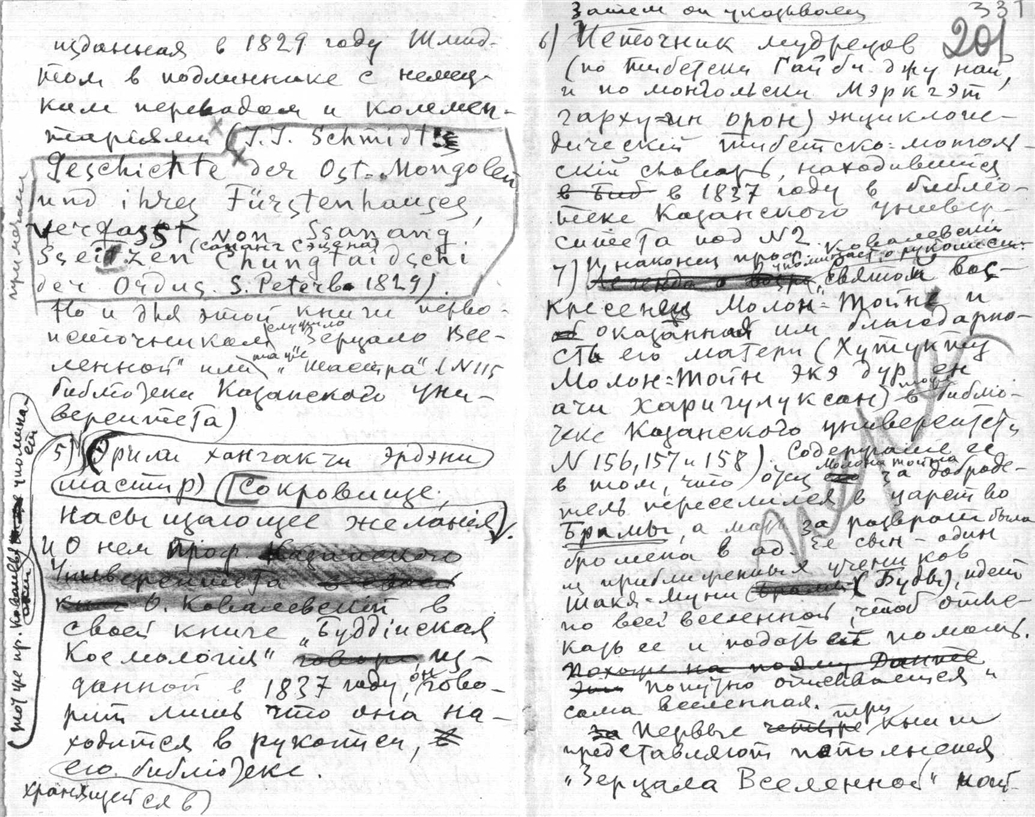 изданная в 1829 году Шмид-
том в подлиннике с немец-
ким переводом и коммен-
тариями (J.J. Schmidt
Geschichte der Ost-Mongolen
und ihres Fürstenhauses,
verfasst von Ssanang
(Сананг Сэцена)
Ssetzen Chungtaidschi
der Ordus. S. Peterb. 1829).
Но и для этой книги перво-
источником служило Зерцало Все-
ленной" или также „Шастра" (N 115
библиотеки Казанского уни-
верситета)
5) (Эрили хангакчи эрдэни
шастир) Сокровище,
насыщающее желания.
О нем проф Казанского
Университета
О. Ковалевский в
своей книге „Буддiйская
Космологiя" говори из-
данной в 1837 году, он гово-
рит лишь что она на-
ходится в рукописи, в
его библiотеке.
хранящейся в)
примечание
также пр. Ковалевский упомина-
ет
Затем он указывает
331
201
6) Источник мудрецов
(по тибетски Гайби-джунай,
и по монгольски Мэркгэт
гарху-ин орон) энциклопе-
дический тибетско-монголь-
ский словарь, находившийся
в биб в 1837 году в библио-
теке Казанского универ-
ситета под N 2.
7) И наконец проф. Ковалевский
упоминает о рукописи:
Легенда о святой вос-
кресенец Молон-Тойне и
об оказанной им благодарно-
сть его матери (Хутукту
Молон-Тойн экэ дурэн
ачи харигулуксан) в библио-
теке Казанского университета
N 156, 157 и 158). Содержание ее
в том, что отец Молона Тойна за доброде-
тель переселился в царство
Брамы, а мать за разврат была
брошена в ад. Ее сын - один
из приближенных учеников
Шакя-Муни (Будды), идет
по всей вселенной, чтоб оты-
кать ее и подать ей помощь,
Похоже на поэму Данте
попутно описывается и
сама вселенная.
Первые три книги
представляют пополнения
„Зерцала Вселенной"